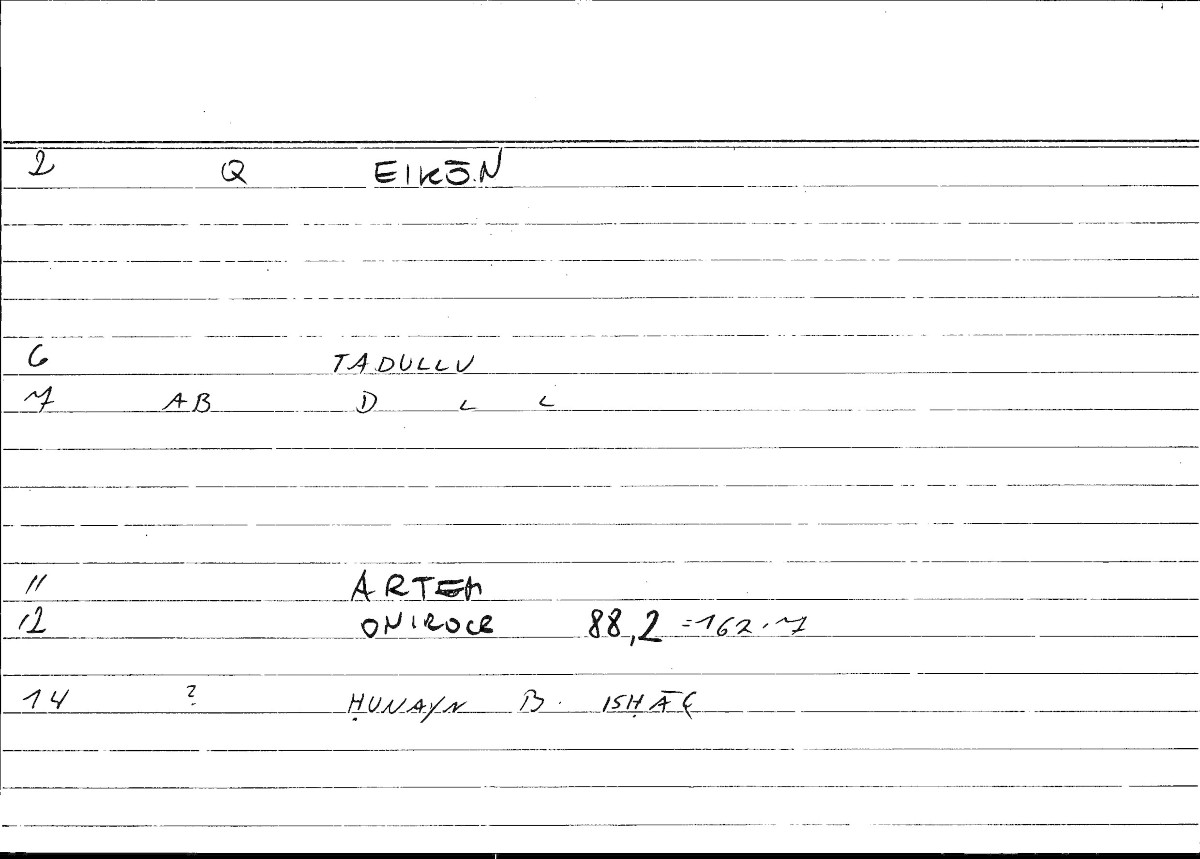 2 Q EIKŌN
6 TADULLU
7 AB D L L
11 ARTEM
12 ONIROCR 88,2 =162.7
14 ? ḤUNAYN B. ISḤĀQ